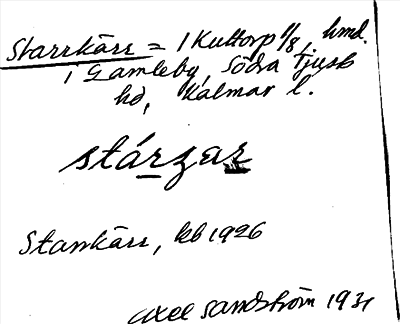 Starrkärr = 1 Kultorp 1/8, hmd.
i Gamleby, Södra Tjust
hd, Kalmar l.
stárzar
Starrkärr, kb 1926
Axel Sandström 1931